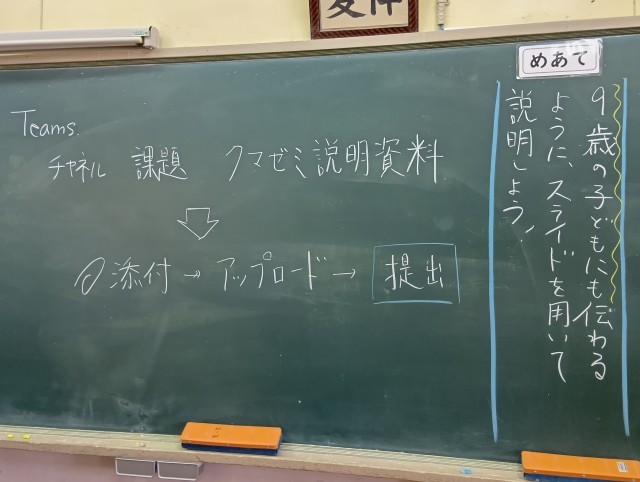 めあて
9歳の子どもにも伝わる
ように、スライドを用いて
説明しよう!
Teams.
チャネル 課題 クマゼミ説明資料
添付→アップロード→提出